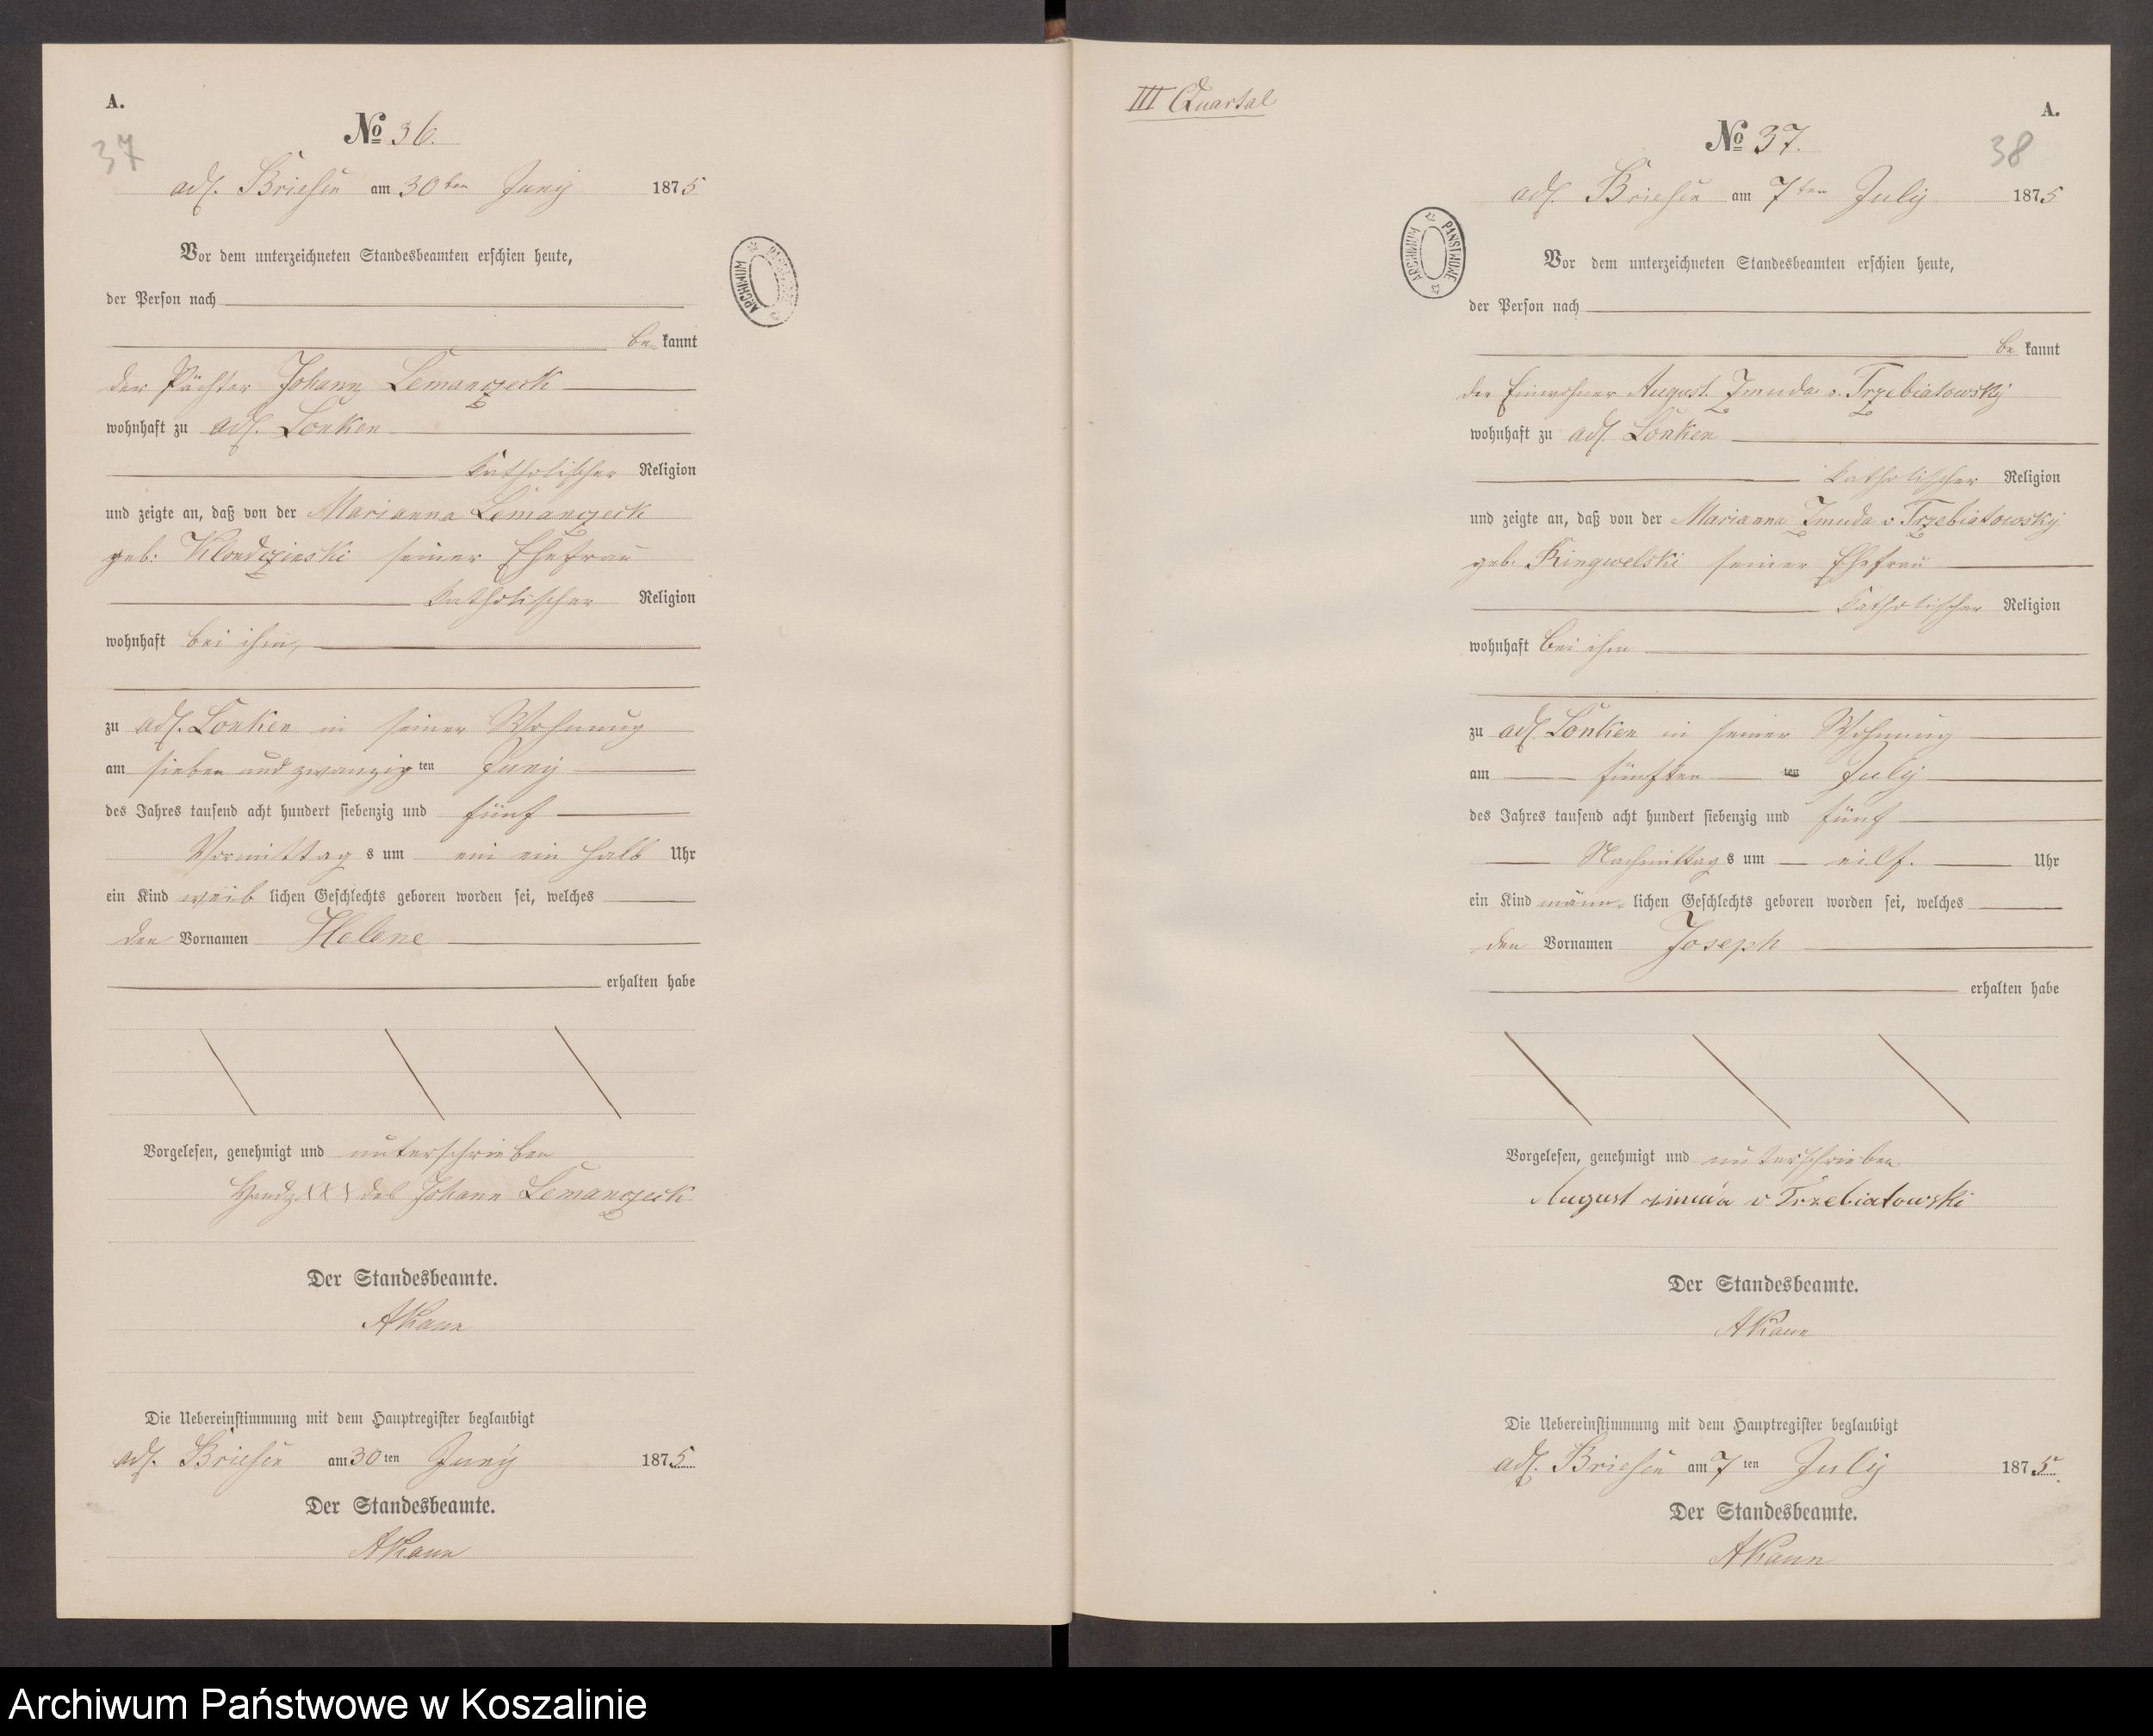 A.
No 36.
37
adl. Briesen am 30ten Juny 1875
Vor dem unterzeichneten Standesbeamten erschien heute,
der Person nach
be kannt
der Pächter Johann Lemanczeck
wohnhaft zu adl. Lonken
katholischer Religion
und zeigte an, daß von der Marianna Lemanczeck
geb: Klondczinski seiner Ehefrau
katholischer Religion
wohnhaft bei ihm,
zu adl. Lonken in seiner Wohnung
am sieben und zwanzig ten Juny
des Jahres tausend acht hundert siebenzig und fünf
Vormittag s um ein ein halb Uhr
ein Kind weib lichen Geschlechts geboren worden sei, welches
den Vornamen Helene
erhalten habe
Vorgelesen, genehmigt und unterschrieben
Handz XXX des Johann Lemanczeck
Der Standesbeamte.
AKaun
Die Uebereinstimmung mit dem Hauptregister beglaubigt
adl. Briesen am 30 ten Juny 1875
Der Standesbeamte.
AKaun
ARCHIWUM PAŃSTWOWE
III Quartal
A.
No 37.
38
adl. Briesen am 7ten July 1875
ARCHIWUM PAŃSTWOWE
Vor dem unterzeichneten Standesbeamten erschien heute,
der Person nach
be kannt
der Einwohner August Zmuda v. Trzebiatowsky
wohnhaft zu adl. Lonken
katholischer Religion
und zeigte an, daß von der Marianna Zmuda v Trzebiatowsky
geb. Ringwelski seiner Ehefrau
katholischer Religion
wohnhaft bei ihm
zu adl. Lonken in seiner Wohnung
am fünften ten July
des Jahres tausend acht hundert siebenzig und fünf
Nachmittag s um eilf. Uhr
ein Kind männ lichen Geschlechts geboren worden sei, welches
den Vornamen Joseph
erhalten habe
Vorgelesen, genehmigt und unterschrieben
August v Trzebiatowski
Der Standesbeamte.
AKaun
Die Uebereinstimmung mit dem Hauptregister beglaubigt
adl. Briesen am 7 ten July 1875.
Der Standesbeamte.
AKaun
Archiwum Państwowe w Koszalinie